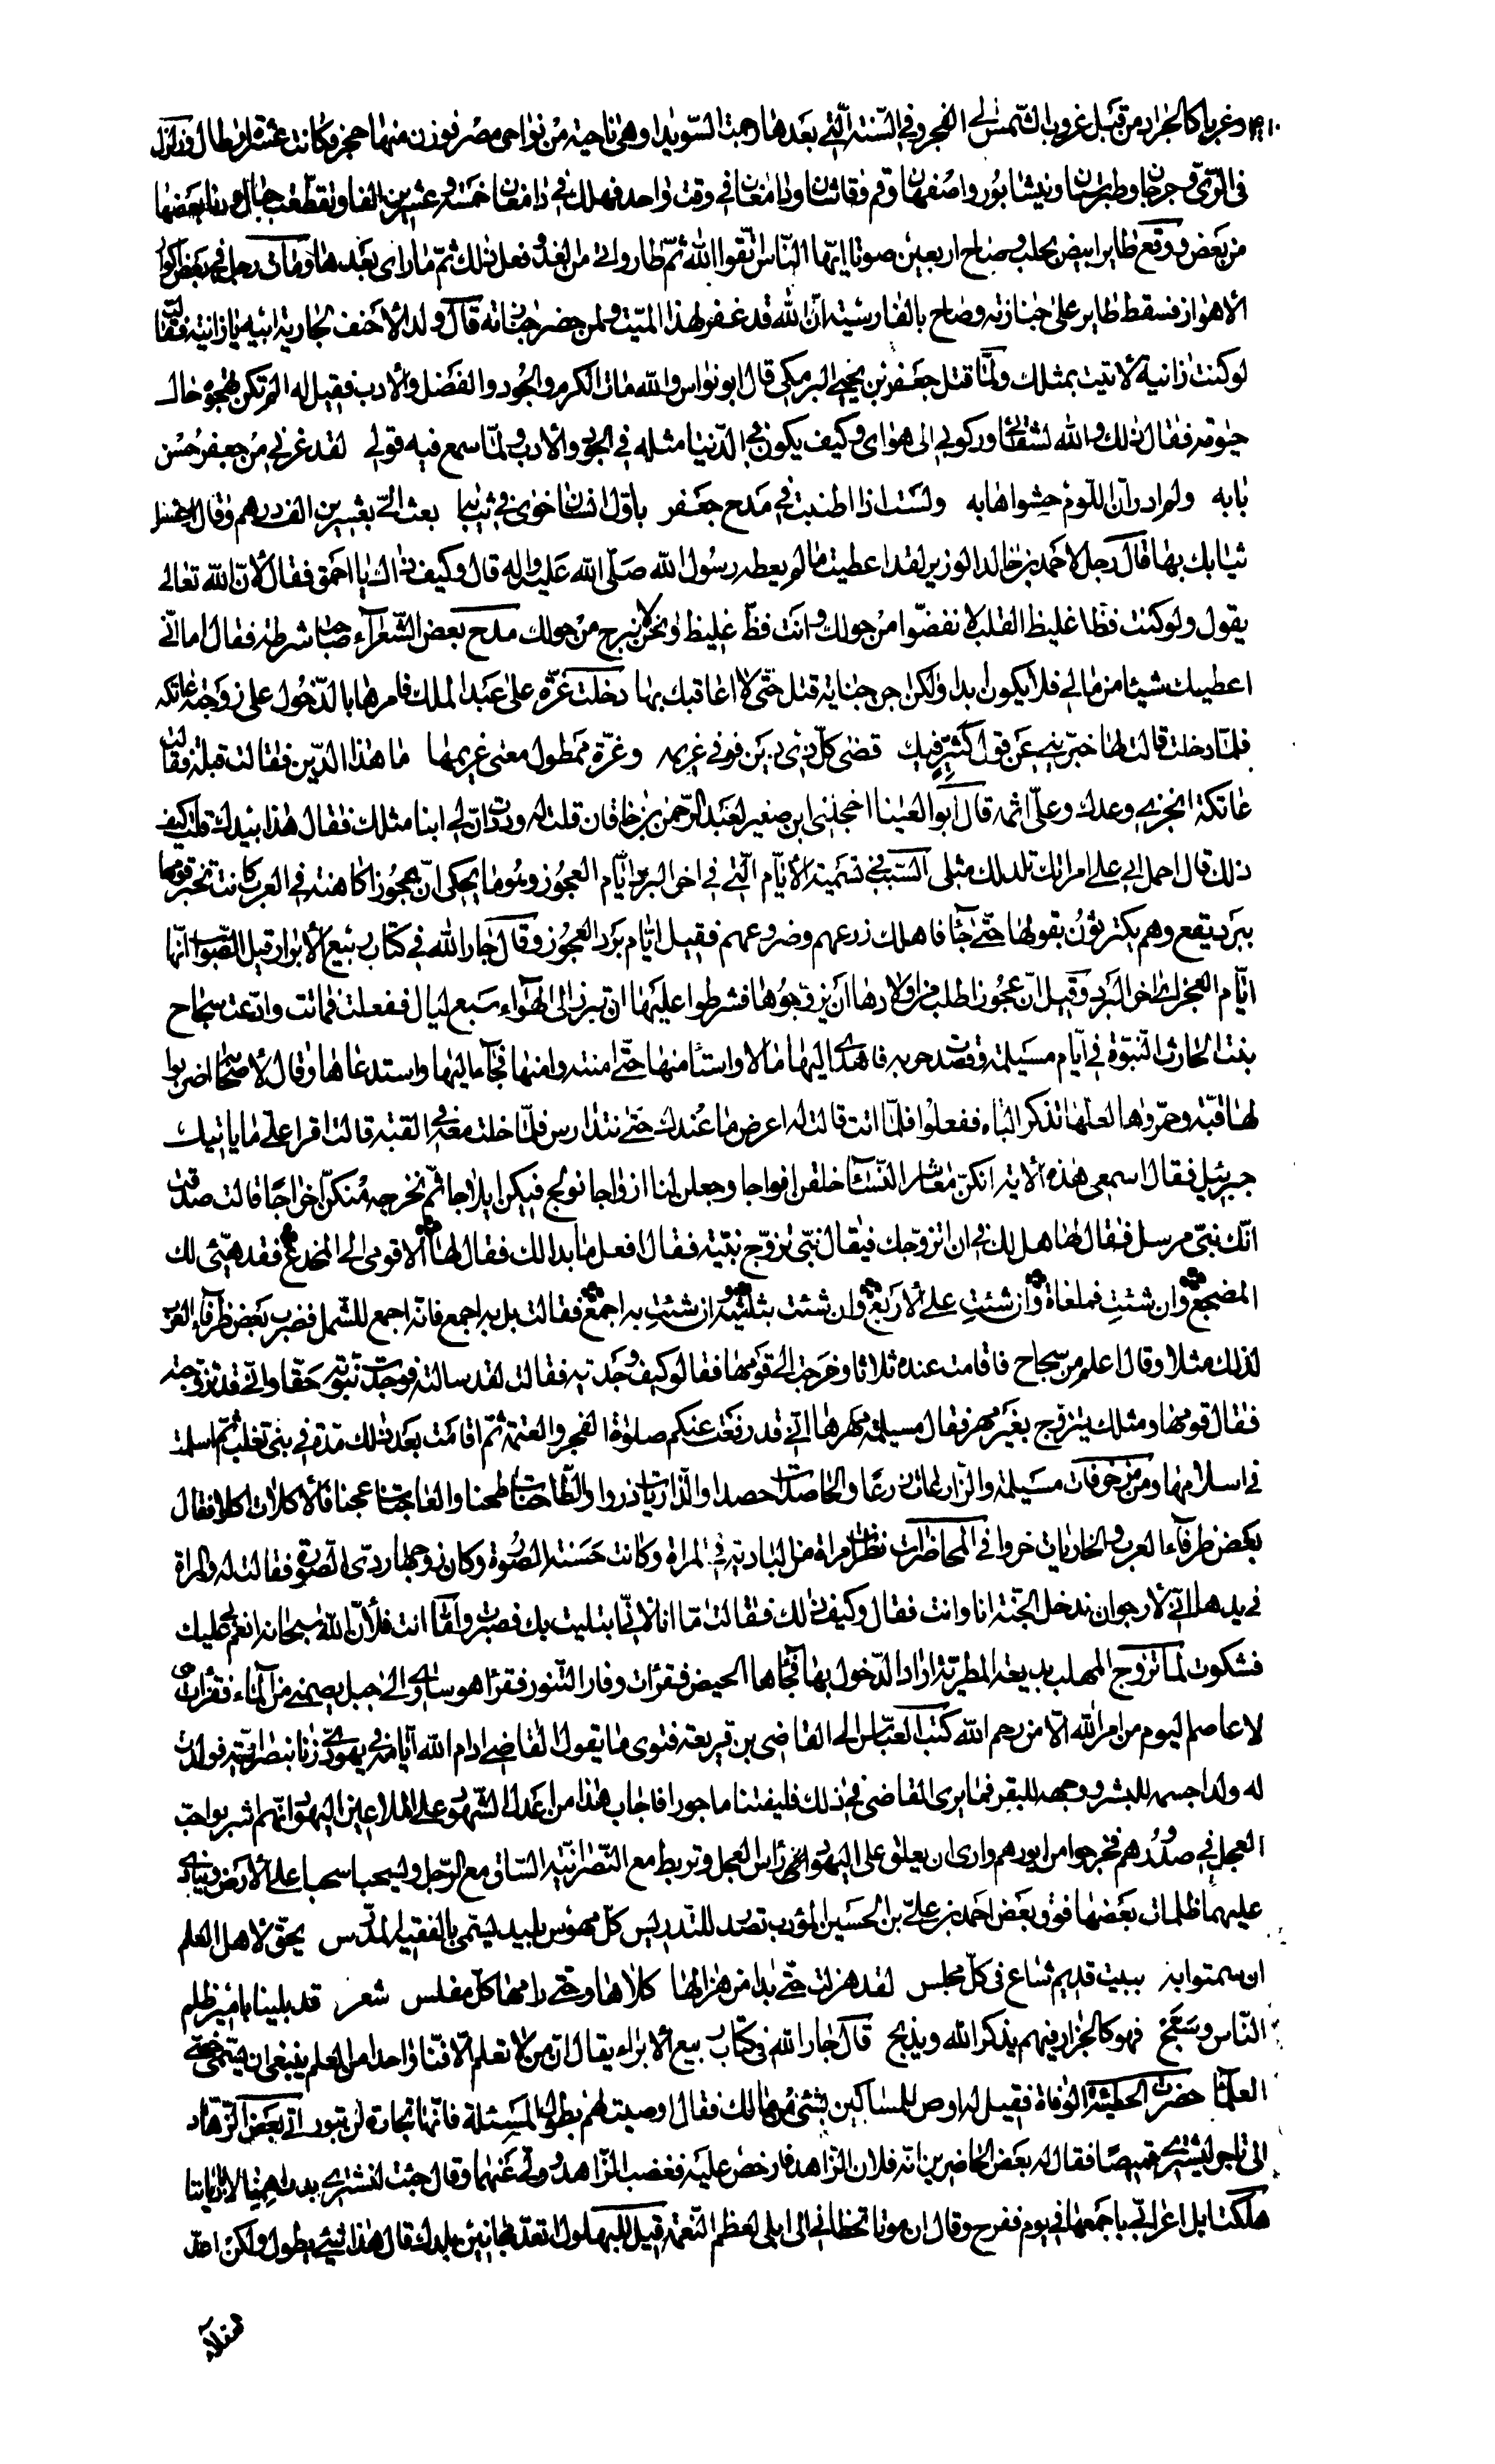 وغربا كالجراد من قبل غروب الشمس الى الفجر وفي السنة التي بعدها رجمت السويدا وهي ناحية من نواحي مصر فوزن منها حجر وكانت عشرة ارطال وزلزل
في الري وجرجان وطبرستان ونيشابور واصفهان وقم وقاشان ودامغان في وقت واحد فهلك في دامغان خمسة وعشرين الفا وتقطعت جبال ودنا بعضها
من بعض ووقع طاير ابيض بحلب وصاح اربعين صوتا ايها الناس اتقوا الله ثم طار واتى من الغد وفعل ذلك ثم ما رأى بعدها ومات رجل في بعض اكوار
الاهواز فسقط طاير على جنازته وصاح بالفارسية ان الله قد غفر لهذا الميت ولمن حضر جنازته قال ولد الأحنف لجارية ابيه يا زانية فقالت
لو كنت زانية لاتيت بمثلك ولما قتل جعفر بن يحيى البرمكي قال ابو نواس والله مات الكرم والجود والفضل والأدب فقيل له الم تكن تهجوه حال
حيوته فقال ذلك والله لشقائي وركوبي الى هواى وكيف يكون في الدنيا مثله في الجود والأدب ولما سمع فيه قولي لقد غرني من جعفر حسن
بابه ولم ادر ان اللوم حشو اهابه ولست اذا اطنبت في مدح جعفر باول انسان خرى في ثيابه بعث الي بعشرين الف درهم وقال اغسل
ثيابك بها قال رجل لاحمد بن خالد الوزير لقد اعطيت ما لم يعطه رسول الله صلى الله عليه واله قال وكيف ذاك يا احمق فقال لأن الله تعالى
يقول ولو كنت فظا غليظ القلب لانفضوا من حولك وانت فظ غليظ ونحن لا نبرح من حولك مدح بعض الشعراء صاحب شرطة فقال اما اني
اعطيك شيئا من مالي فلا يكون ابدا ولكن اجن جناية قتل حتى لا اعاقبك بها دخلت عزة على عبد الملك فامرها بالدخول على زوجته عاتكة
فلما دخلت قالت لها خبريني عن قول كثير فيك قضى كل ذي دين فوفى غريمه وعزة ممطول معنى غريمها ما هذا الدين فقالت قبلة فقالت
عاتكة انجزي وعدك وعلي اثمه قال ابو العينا اخجلني ابن صغير لعبد الرحمن بن خاقان قلت له وددت ان لي ابنا مثلك فقال هذا بيدك قلت كيف
ذلك قال احمل ابي على امراتك تلد لك مثلي السبب في تسمية الأيام التي في اخر البرد ايام العجوز وبوما يحكى ان عجوزا كاهنة في العرب كانت تخبر قومها
ببرد يقع وهم يكترثون بقولها حتى جاء فاهلك زرعهم وضروعهم فقيل ايام برد العجوز وقال جار الله في كتاب ربيع الأبرار قيل الصواب انها
ايام العجز اى اخر البرد وقيل ان عجوزا طلبت من اولادها ان يزوجوها فشرطوا عليها ان تبرز الى الهواء سبع ليال ففعلت فماتت وادعت سجاح
بنت الحارث النبوة في ايام مسيلمة وقصدت حربه فاهدى اليها مالا واستامنها حتى امنته وامنها فجاء اليها واستدعاها وقال لأصحابه اضربوا
لها قبة وجمروها لعلها تذكر الباء ففعلوا فلما اتت قالت له اعرض ما عندك حتى نتدارس فلما خلت معه في القبة قالت اقرا علي ما ياتيك
جبرئيل فقال اسمعي هذه الاية انكن معاشر النساء خلقتن افواجا وجعلتن لنا ازواجا نولج فيكن ايلاجا ثم نخرجه منكن اخراجا قالت صدقت
انك نبي مرسل فقال لها هل لك في ان اتزوجك فيقال نبي تزوج نبية فقال افعل ما بدا لك فقال لها الا قومي الى المخدع فقد هيئ لك
المضجع وان شئت فملقاة وان شئت على الاربع وان شئت بثلثيه وان شئت به اجمع فقالت بل به اجمع فانه اجمع للشمل فضرب بعض ظرفاء العرب
لذلك مثلا وقال اعلم من سجاح فاقامت عنده ثلاثا وخرجت الى قومها فقالوا كيف وجدتيه فقالت لقد سالته فوجدت نبوته حقا واني قد تزوجته
فقال قومها ومثلك يتزوج بغير مهر فقال مسيلمة مهرها اني قد رفعت عنكم صلوة الفجر والعتمة ثم اقامت بعد ذلك مدة في بني تغلب ثم اسلمت
في اسلامها ومن خرافات مسيلمة والزارعات زرعا والحاصدات حصدا والذاريات ذروا والطاحنات طحنا والعاجنات عجنا فالأكلات اكلا فقال
بعض ظرفاء العرب والخاريات خروا في المحاضرات نظرت امراة من البادية في المراة وكانت حسنة الصورة وكان زوجها ردي الصورة فقالت له والمراة
في يدها اني لأرجو ان ندخل الجنة انا وانت فقال وكيف ذلك فقالت اما انا لأني ابتليت بك فصبرت واما انت فلأن الله سبحانه انعم بي عليك
فشكرت لما تزوج المهلب بديعة المطرية اراد الدخول بها فجاءها الحيض فقرات وفار التنور فقرا هو ساوى الى جبل يعصمني من الماء فقرات هي
لا عاصم اليوم من امر الله الا من رحم الله كتب العباس الى القاضي بن قريعة فتوى ما يقول القاضي ادام الله ايامه في يهودي زنا بنصرانية فولدت
له ولدا جسمه للبشر ووجهه للبقر فما يرى القاضي في ذلك فليفتنا ماجورا فاجاب هذا من اعدل الشهود على الملاعين اليهود انهم اشربوا حب
العجل في صدورهم فخرج من ايورهم وارى ان يعلق على اليهودي راس العجل وتربط مع النصرانية الساق مع الرجل ويسحبا سحبا على الأرض وينادى
عليهما ظلمات بعضها فوق بعض احمد بن علي بن الحسين المؤدب تصدر للتدريس كل مهوس بليد ليسمى بالفقيه المدرس يحق لأهل العلم
ان يتمثلوا به ببيت قديم شاع في كل مجلس لقد هزلت حتى بدا من هزالها كلاها وحتى رامها كل مفلس شعر قد بلينا بامير ظلم
الناس وسبح فهو كالجزار فيهم يذكر الله ويذبح قال جار الله في كتاب ربيع الأبرار يقال ان من لا تعلم الا فنا واحدا من العلم ينبغي ان يسمى خصي
العلماء حضرت الحطيئة الوفاة فقيل له اوص للمساكين بشئ من مالك فقال اوصيت لهم بطول المسئلة فانها تجارة لن تبور اتى بعض الزهاد
الى تاجر ليشترى قميصا فقال له بعض الحاضرين انه فلان الزاهد فارخص عليه فغضب الزاهد وولى عنهما وقال جئت لنشترى بدراهمنا لا بادياننا
هلكت ابل اعرابي باجمعها في يوم ففرح وقال ان موتا تخطاني الى ابلي لعظيم النعمة قيل للبهلول اتعد مجانين بلدك قال هذا شئ يطول ولكن اعد
عقلاء